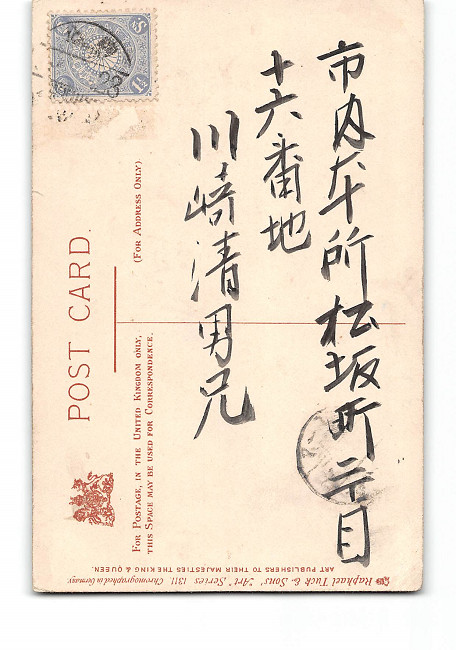 市内本所松坂町二丁目
十六番地
川崎清男兄
POST CARD.
(FOR ADDRESS ONLY)
FOR POSTAGE, IN THE UNITED KINGDOM ONLY,
THIS SPACE MAY BE USED FOR CORRESPONDENCE.
Raphael Tuck & Sons' "Art" Series 1311. Chromographed in Germany.
ART PUBLISHERS TO THEIR MAJESTIES THE KING & QUEEN.